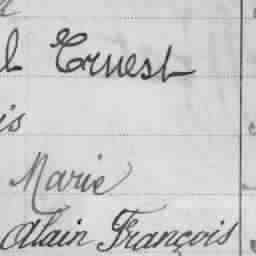 l Ernest
is
Marie
Alain François